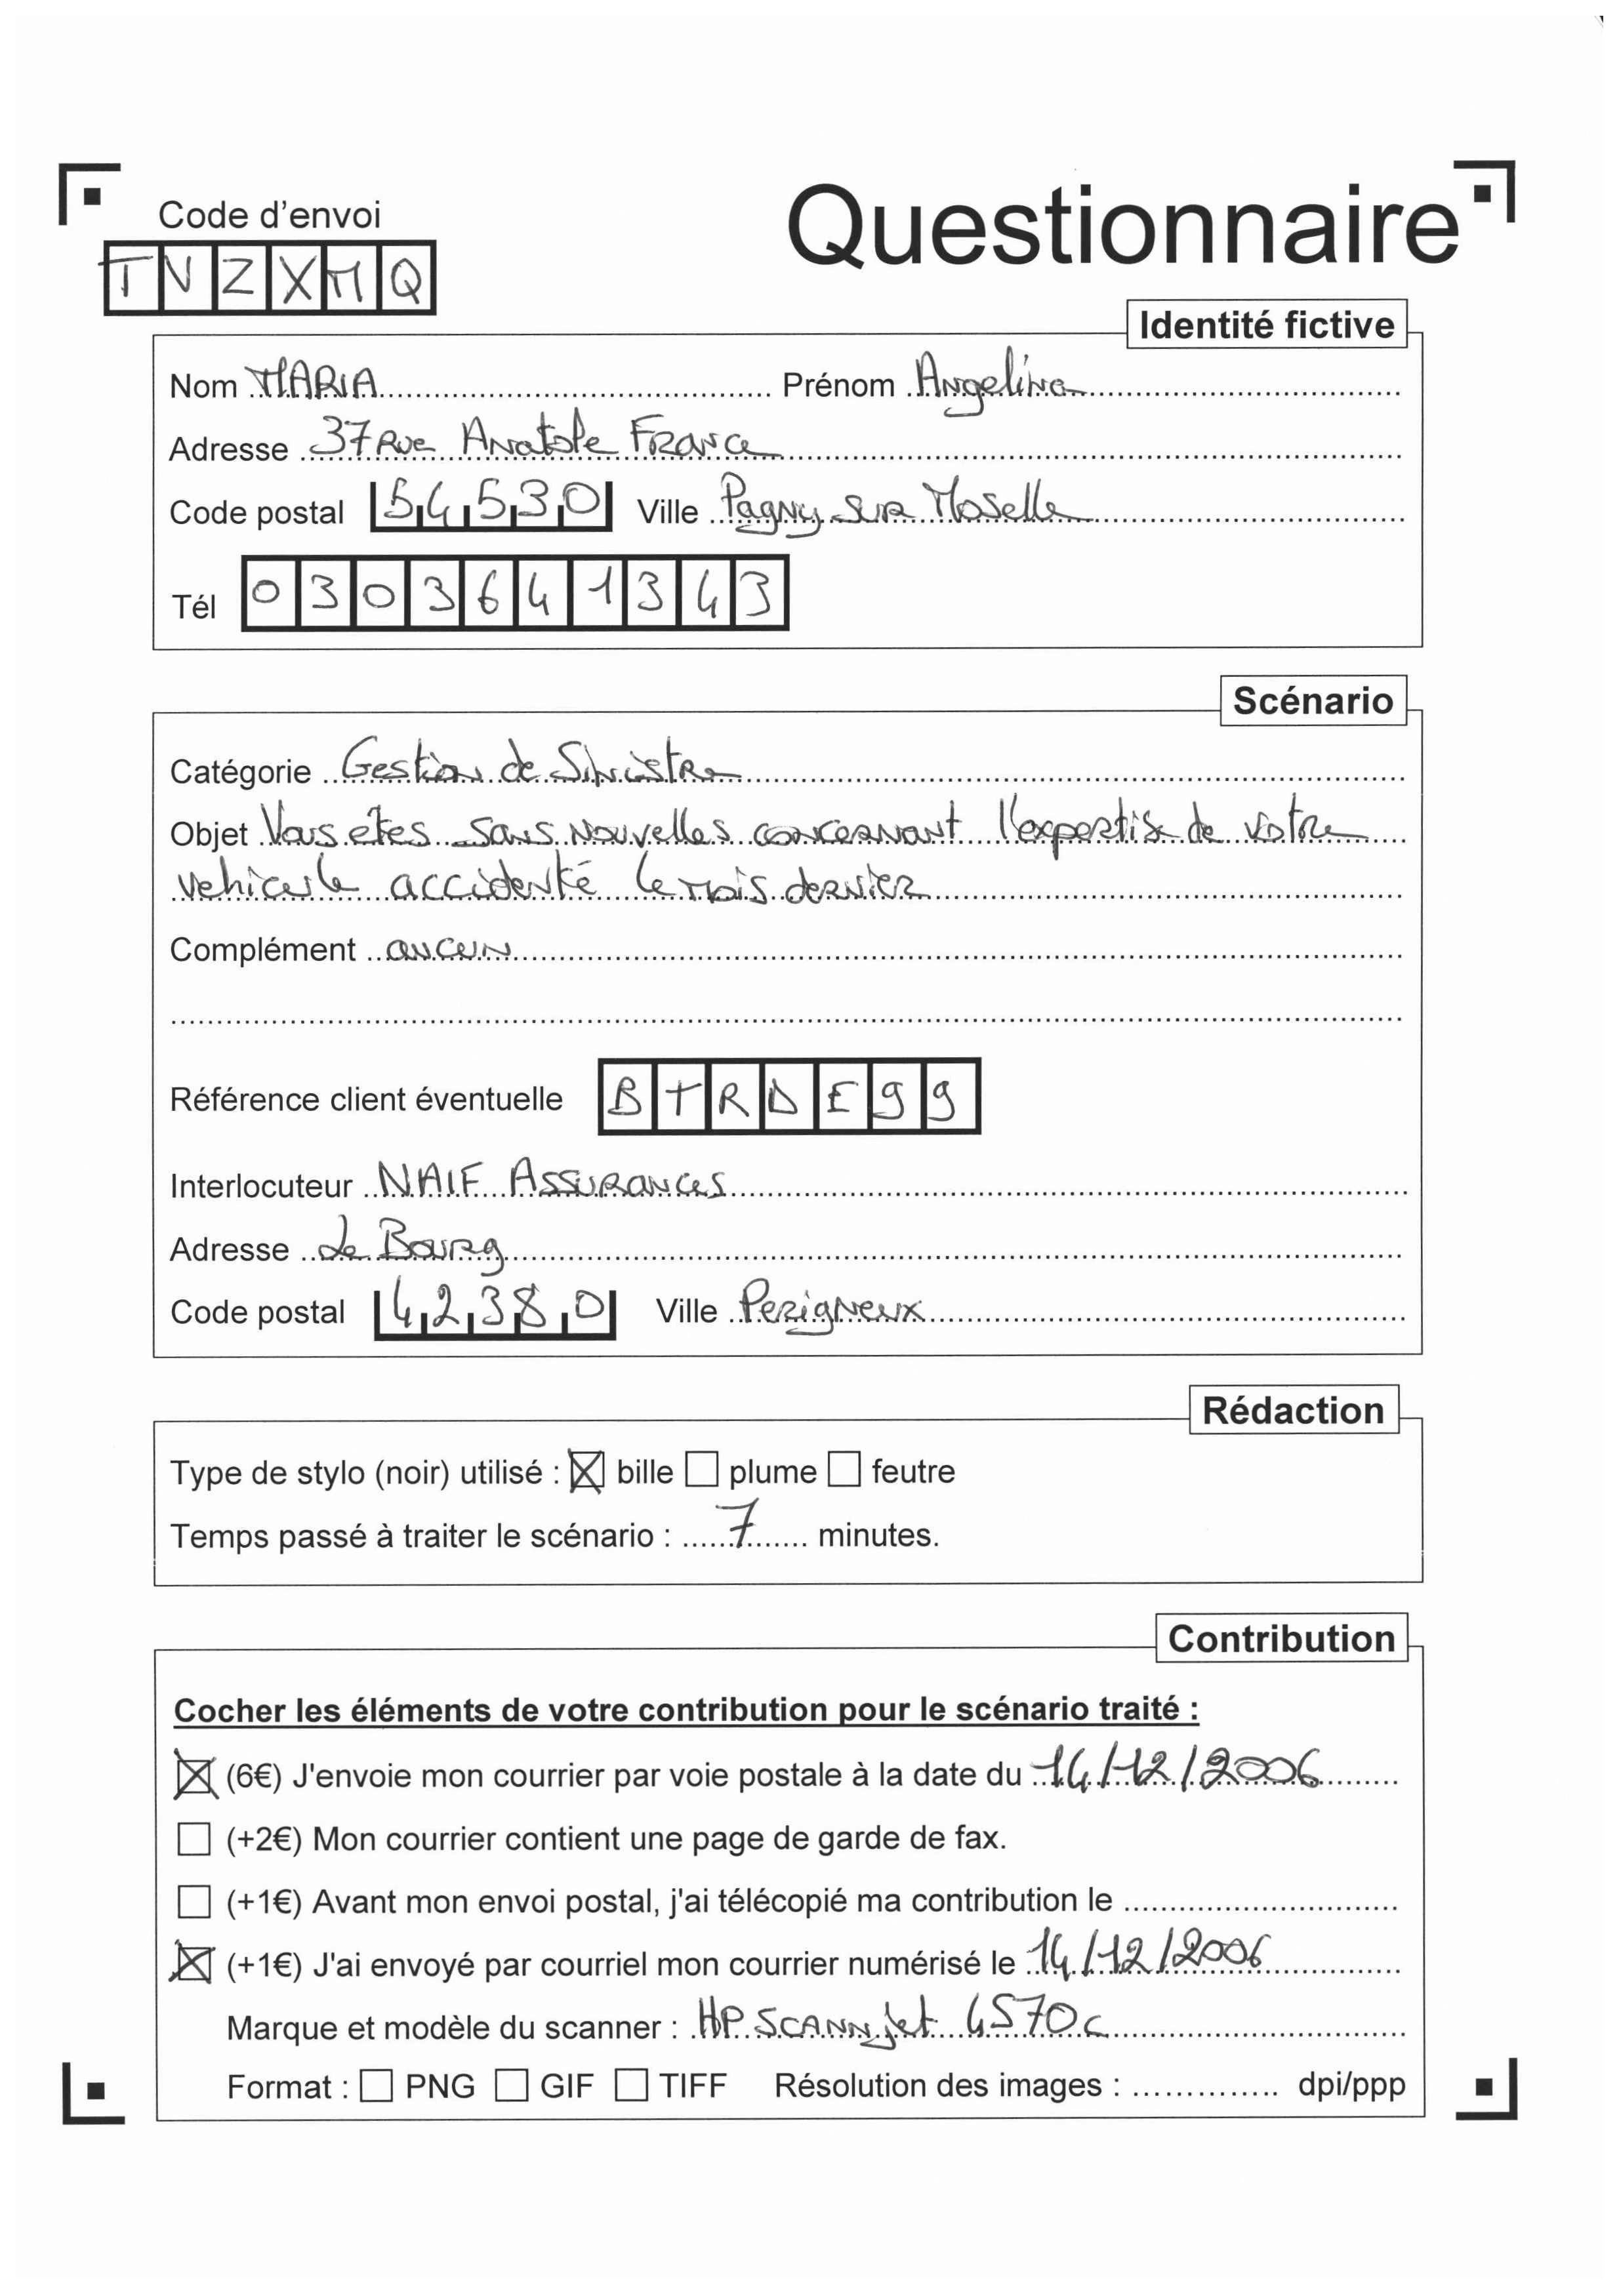 Code d'envoi
Questionnaire
TNZXMQ
Identité fictive
Nom MARIA Prénom Angelina
Adresse 37 Rue Anatole France
Code postal 54530 Ville Pagny sur Moselle
Tél 0303641343
Scénario
Catégorie Gestion de Sinistre
Objet Vous etes sans nouvelles concernant l'expertise de votre
vehicule accidenté le mois dernier
Complément aucun
Référence client éventuelle BTRDE99
Interlocuteur NAIF Assurances
Adresse Le Bourg
Code postal 42380 Ville Perigneux
Rédaction
Type de stylo (noir) utilisé : bille plume feutre
Temps passé à traiter le scénario : 7 minutes.
Contribution
Cocher les éléments de votre contribution pour le scénario traité :
(6€) J'envoie mon courrier par voie postale à la date du 14/12/2006
(+2€) Mon courrier contient une page de garde de fax.
(+1€) Avant mon envoi postal, j'ai télécopié ma contribution le
(+1€) J'ai envoyé par courriel mon courrier numérisé le 14/12/2006
Marque et modèle du scanner : HP SCANNjet 4570c
Format : PNG GIF TIFF Résolution des images : dpi/ppp